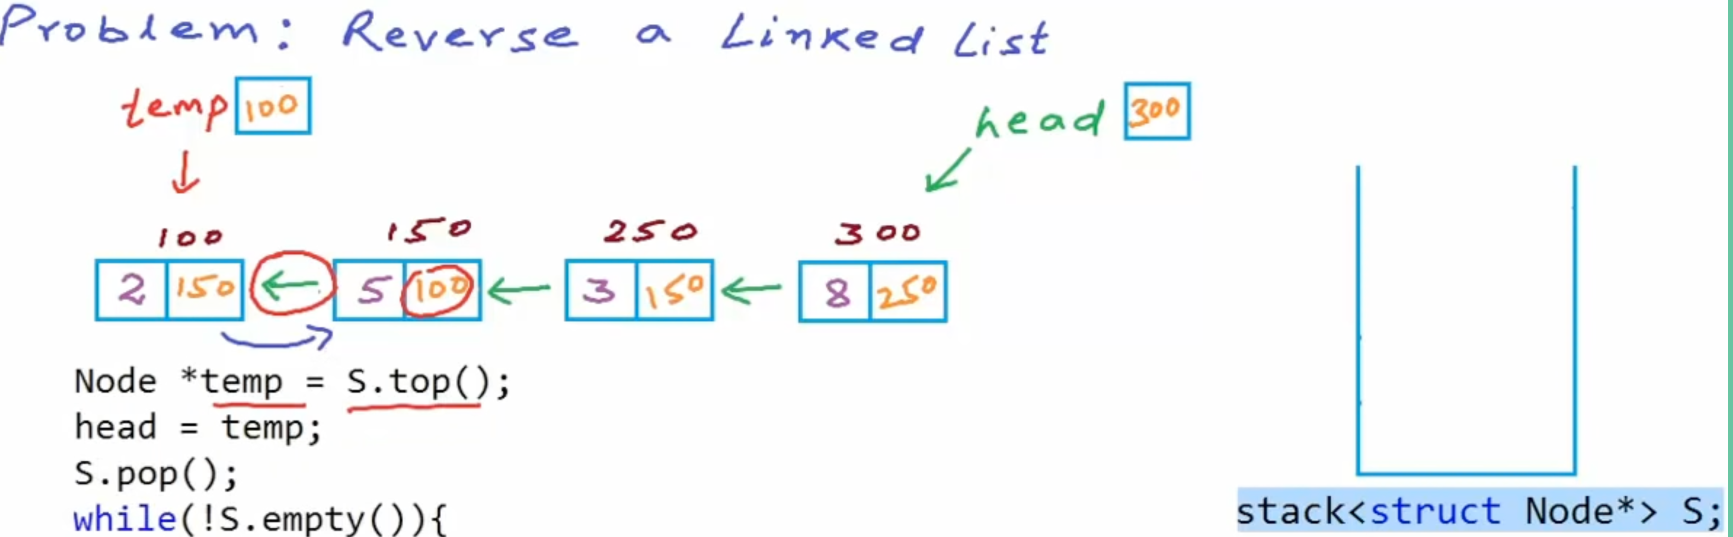 Problem: Reverse a Linked List
temp 100
head 300
100 150 250 300
2 150 5 100 3 150 8 250
Node *temp = S.top();
head = temp;
S.pop();
while(!S.empty()){
stack<struct Node*> S;